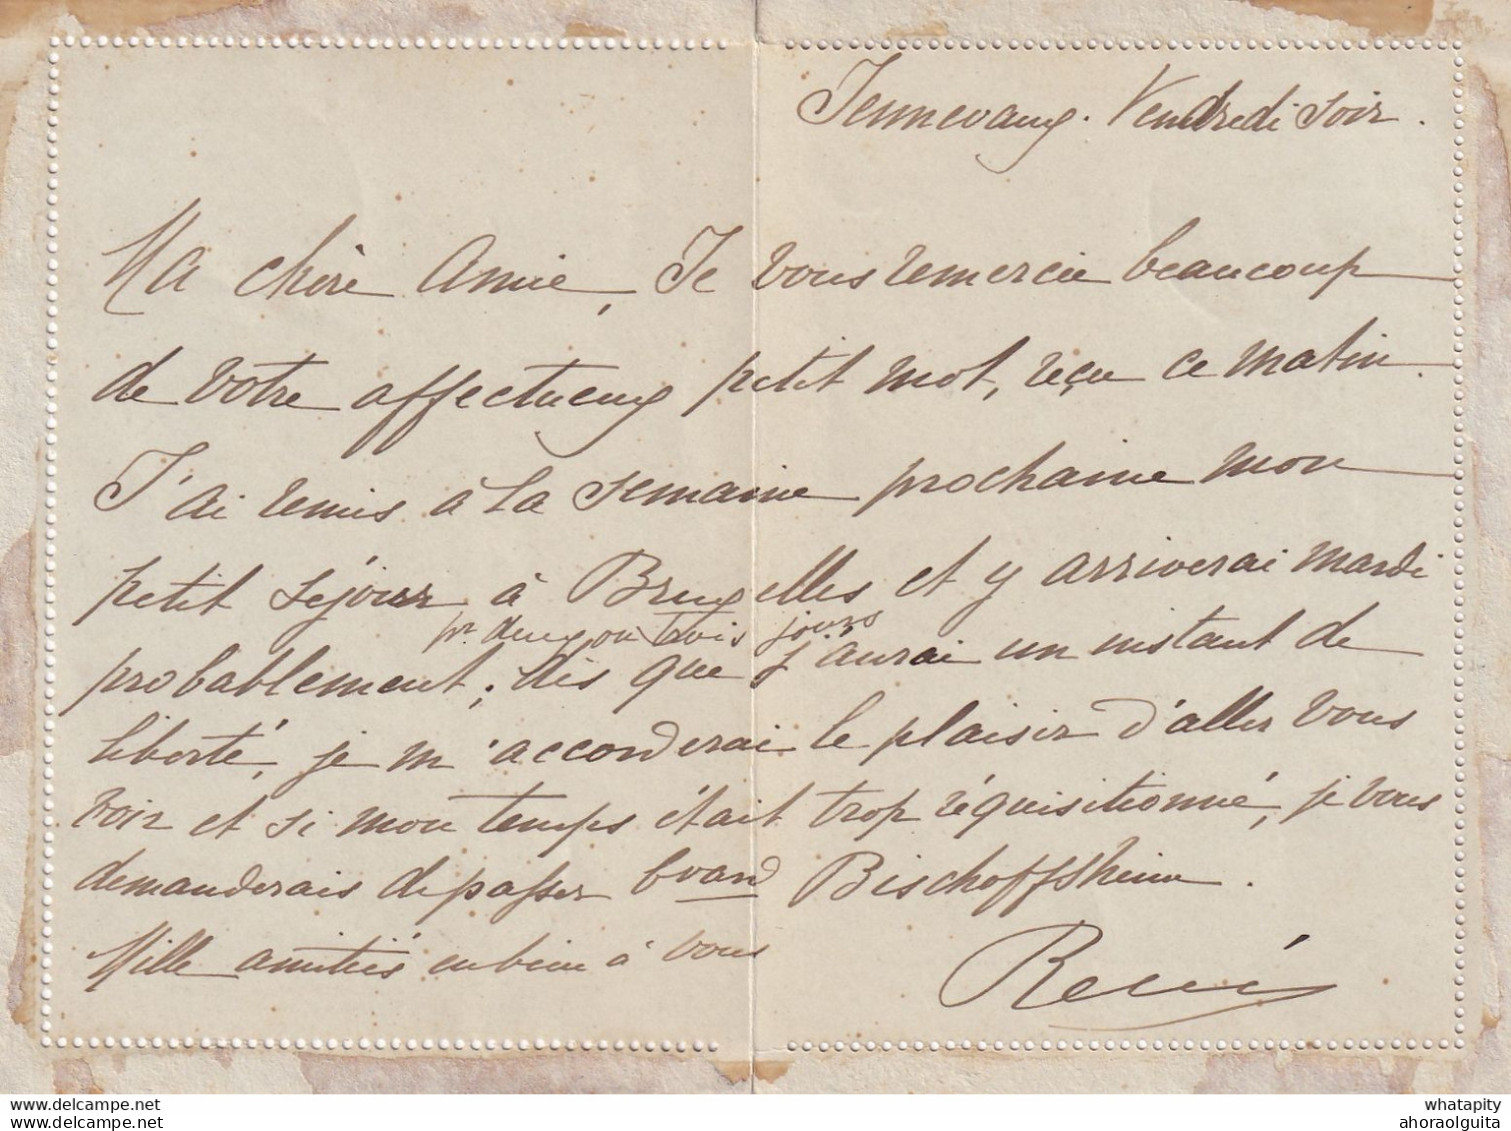 Jennevaux. Vendredi soir.
Ma chère Amie, Je vous remercie beaucoup
de votre affectueux petit mot, reçu ce matin.
J'ai remis à la semaine prochaine mon
petit séjour à Bruxelles et y arriverai mardi
pr. deux ou trois jours
probablement; dès que j'aurai un instant de
liberté, je m'accorderai le plaisir d'aller vous
voir et si mon temps était trop réquisitionné, je vous
demanderais de passer bvard Bischoffsheim.
Mille amitiés en bien à vous
René
www.delcampe.net
whatapity
delcampe.net
ahoraolguita